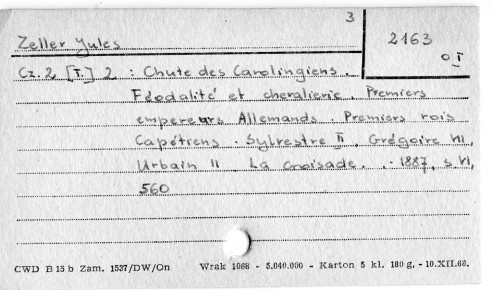 3
Zeller Jules
2163
o I
Cz. 2 [T.] 2 : Chute des Carolingiens.
Féodalité et chevalerie. Premiers
empereurs Allemands. Premiers rois
Capétiens. Sylvestre II, Grégoire VII,
Urbain II. La Croisade. .- 1887, s VI,
560
CWD B 15 b Zam. 1537/DW/On Wrak 1068 - 5.040.000 - Karton 5 kl. 180 g. - 10.XII.68.